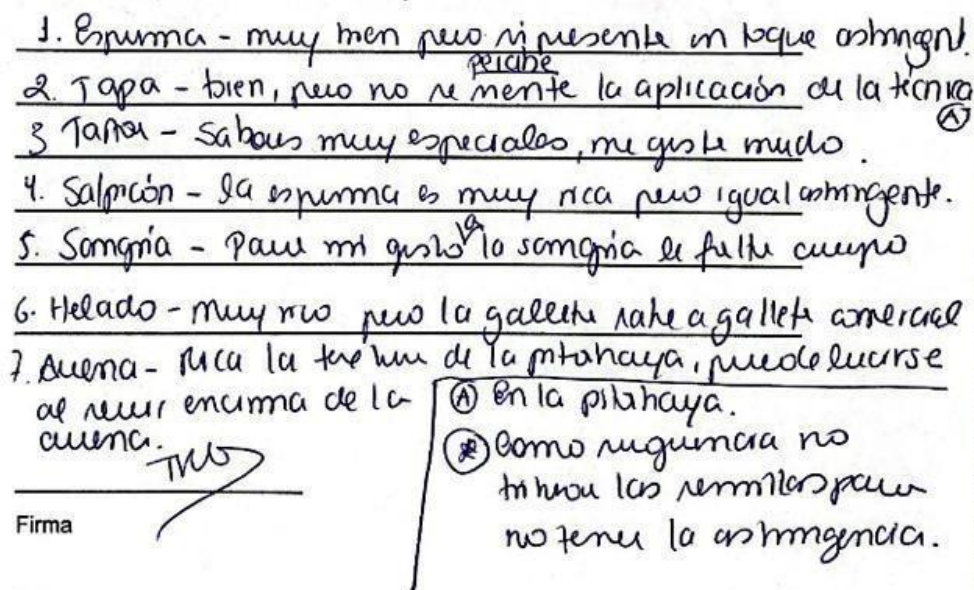 1. Espuma - muy bien pero si presente un toque astringent.
percibe
2. Tapa - bien, pero no se siente la aplicación de la técnica Ⓐ
3 Tartar - Sabores muy especiales, me gusta mucho.
4. Salpicón - la espuma es muy rica pero igual astringente.
5. Sangria - Para mi gusto la la sangria le falta cuerpo
6. Helado - muy rico pero la galleta sabe a galleta comercial
7. Avena - Rica la textura de la pitahaya, puede lucirse
al servir encima de la
avena.
Firma
Ⓐ En la pitahaya.
* Como sugerencia no
triturar las semillas para
no tener la astringencia.